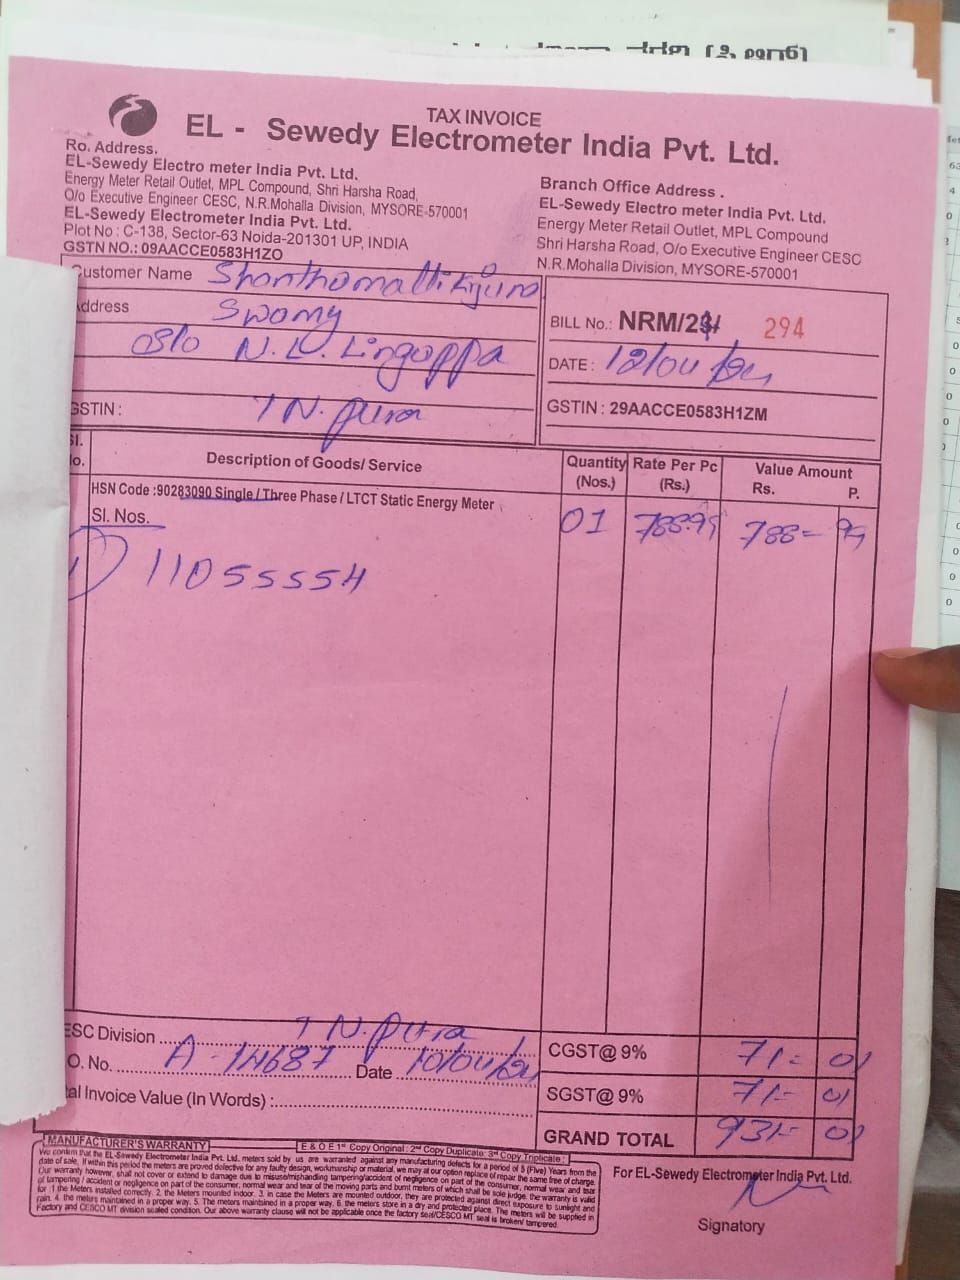 TAX INVOICE
EL - Sewedy Electrometer India Pvt. Ltd.
Ro. Address.
EL-Sewedy Electro meter India Pvt. Ltd.
Energy Meter Retail Outlet, MPL Compound, Shri Harsha Road,
O/o Executive Engineer CESC, N.R.Mohalla Division, MYSORE-570001
EL-Sewedy Electrometer India Pvt. Ltd.
Plot No : C-138, Sector-63 Noida-201301 UP, INDIA
GSTN NO.: 09AACCE0583H1ZO
Branch Office Address .
EL-Sewedy Electro meter India Pvt. Ltd.
Energy Meter Retail Outlet, MPL Compound
Shri Harsha Road, O/o Executive Engineer CESC
N.R.Mohalla Division, MYSORE-570001
Customer Name Shanthamallikarjuna
Address Swamy
S/o N.L. Lingappa
GSTIN : T N. pura
BILL No.: NRM/23/ 294
DATE : 12/04/24
GSTIN : 29AACCE0583H1ZM
Sl. No. Description of Goods/ Service Quantity (Nos.) Rate Per Pc (Rs.) Value Amount Rs. P.
HSN Code :90283090 Single / Three Phase / LTCT Static Energy Meter 01 788.99 788= 99
Sl. Nos.
1) 11055554
ESC Division T N. Pura
O. No. A-14687 Date 10/04/24
tal Invoice Value (In Words) :
CGST@ 9% 71= 01
SGST@ 9% 71= 01
GRAND TOTAL 931= 01
MANUFACTURER'S WARRANTY
E & O E 1st Copy Original : 2nd Copy Duplicate: 3rd Copy Triplicate :
We confirm that the EL-Sewedy Electrometer India Pvt. Ltd. meters sold by us are warranted against any manufacturing defects for a period of 5 (Five) Years from the
date of sale. If within this period the meters are proved defective for any faulty design, workmanship or material, we may at our option replace of repair the same free of charge.
Our warranty however, shall not cover or extend to damage due to misuse/mishandling tampering/accident of negligence on part of the consumer, normal wear and tear
of tampering / accident or negligence on part of the consumer, normal wear and tear of the moving parts and burnt meters of which shall be sole judge. the warranty is valid
for .1 the Meters installed correctly. 2. the Meters mounted indoor. 3. in case the Meters are mounted outdoor, they are protected against direct exposure to sunlight and
rain. 4. the meters maintained in a proper way. 5. The meters maintained in a proper way. 6. the meters store in a dry and protected place. The meters will be supplied in
Factory and CESCO MT division sealed condition. Our above warranty clause will not be applicable once the factory seal/CESCO MT seal is broken/ tampered.
For EL-Sewedy Electrometer India Pvt. Ltd.
Signatory